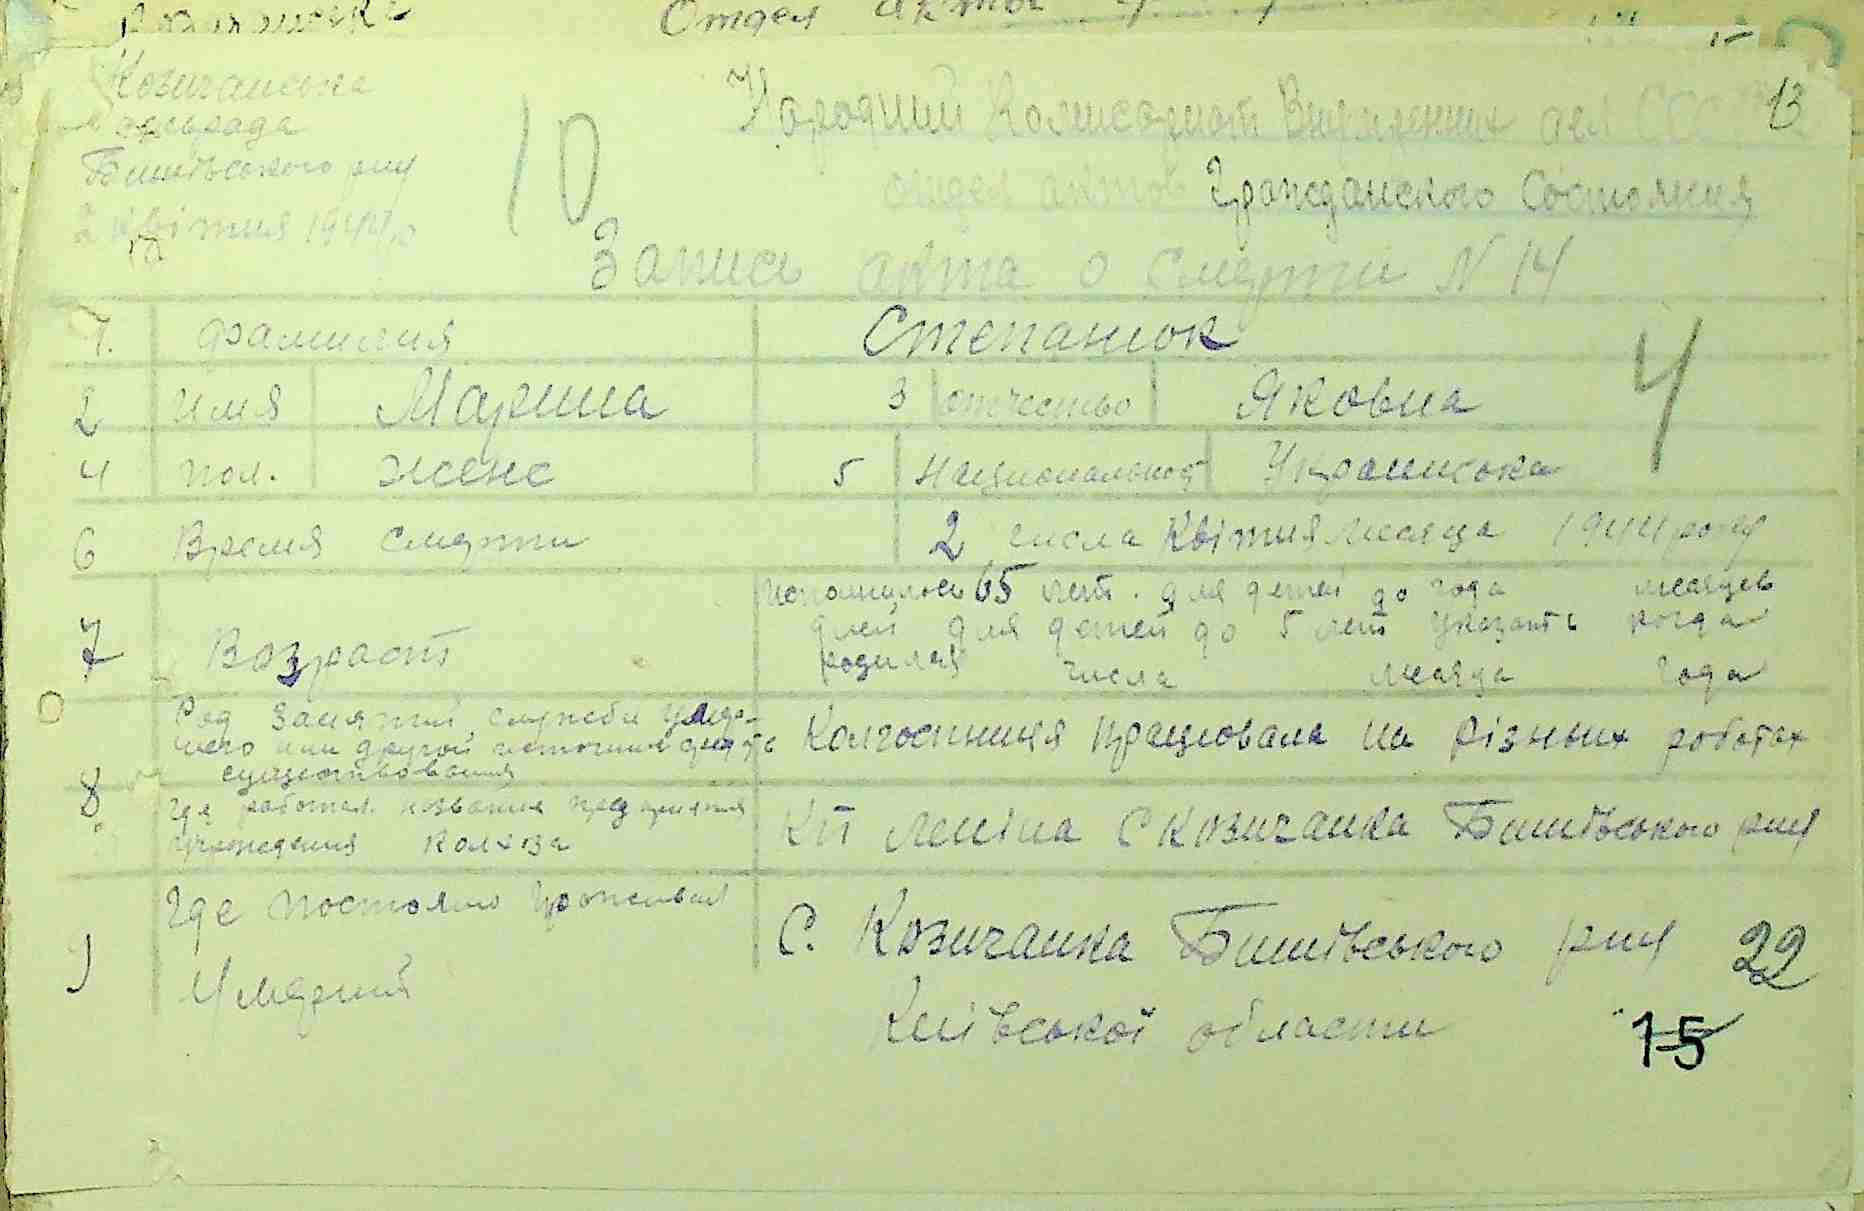 Отдел акты
13
Козичанська
сільрада
Бишівського р-ну
2 квітня 1944 р
10
Народний Комисариат Внутренних дел СССР
отдел актов Гражданского Состояния
Запись акта о смерти N 14
1. фамилия Степанюк
2 имя Марина 3 отчество Яковна
4
4 пол. женс 5 Национальност Украинська
6 Время смерти 2 числа Квітня месяца 1944 року
7 Возраст исполнилось 65 лет. для детей до года месяцев
дней для детей до 5 лет указать когда
родился числа месяца года
8 Род занятий службы умер-
шего или другой источник средств
существования
Колгоспниця працювала на різных роботах
Где работал название предприятия
учреждения колхоза
КП Леніна С Козичанка Бишівського р-ну
9 Где постоянно проживал
Умерший
С. Козичанка Бишівського р-ну 22
Київської области
15